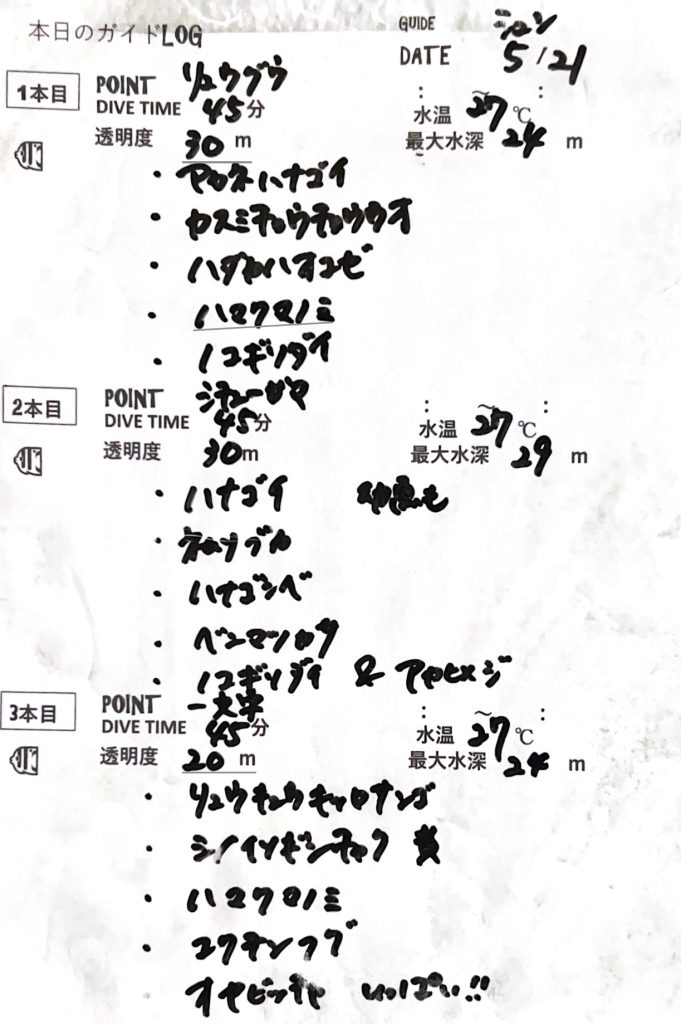 本日のガイドLOG
GUIDE シュン
DATE 5/21
1本目
POINT リュウグウ
DIVE TIME 45分
: ~ :
水温 27℃
透明度 30m
最大水深 24m
・アカネハナゴイ
・カスミチョウチョウウオ
・ハダカハオコゼ
・ハマクマノミ
・ノコギリダイ
2本目
POINT
DIVE TIME 45分
: ~ :
水温 27℃
透明度 30m
最大水深 29m
・ハナゴイ 幼魚も
・ネムリブカ
・ハナゴンベ
・ベンテンコモン
・ノコギリダイ & アカヒメジ
3本目
POINT
DIVE TIME 45分
: ~ :
水温 27℃
透明度 20m
最大水深 24m
・リュウキュウキッカサンゴ
・シライソギンチャク
・ハマクマノミ
・コクテンフグ
オヤビッチャ いっぱい!!